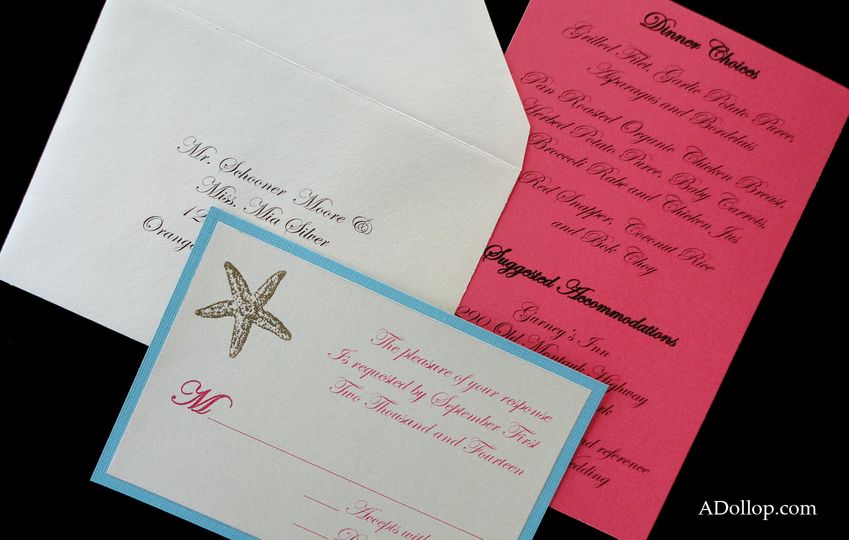 Mr. Schooner Moore &
Miss. Mia Silver
12
Orang
The pleasure of your response
Is requested by September First
Two Thousand and Fourteen
M
Accepts with
Dinner Choices
Grilled Filet, Garlic Potato Puree,
Asparagus and Bordelais
Pan Roasted Organic Chicken Breast,
Herbed Potato Puree, Baby Carrots,
Broccoli Rabe and Chicken Jus
Red Snapper, Coconut Rice
and Bok Choy
Suggested Accommodations
Gurney's Inn
290 Old Montauk Highway
rk
nd reference
edding
ADollop.com